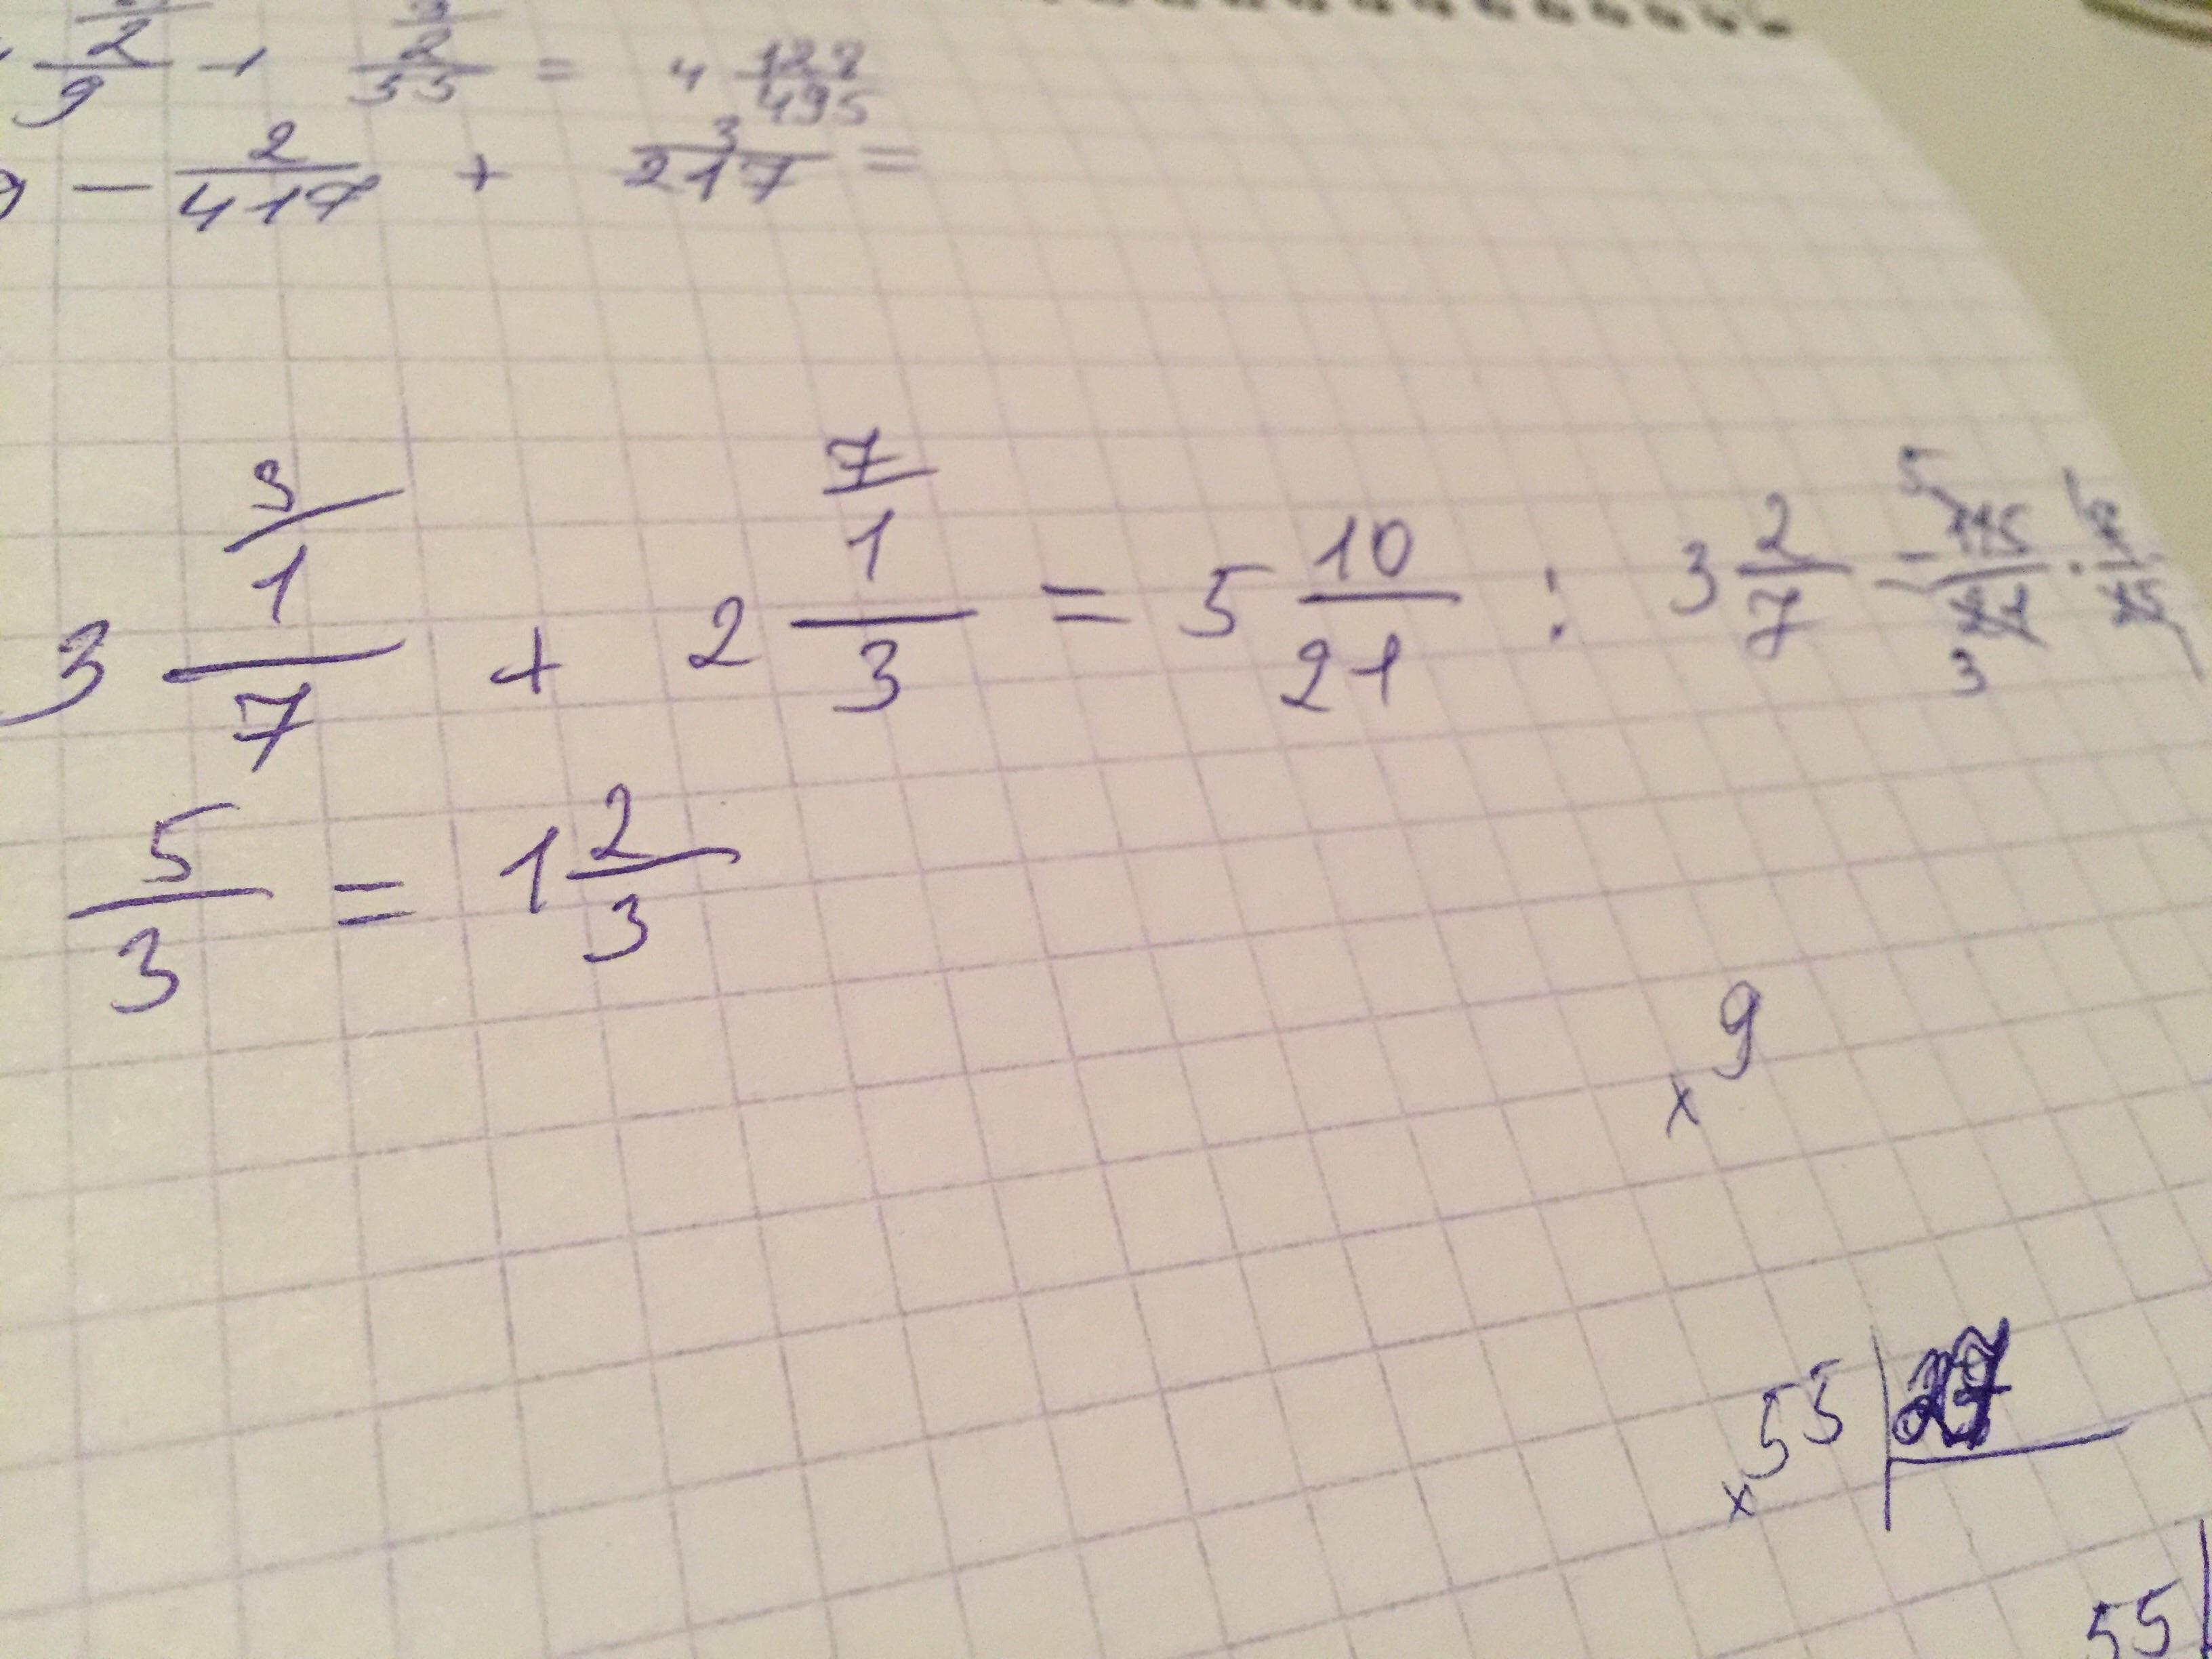 2/9 - 1 2/55 = 4 128/495
- 2/417 + 3/217 =
3 1/7 (3) + 2 1/3 (7) = 5 10/21 : 3 2/7 = 115/21 · 7/23
5/3 = 1 2/3
x 9
x 55
55